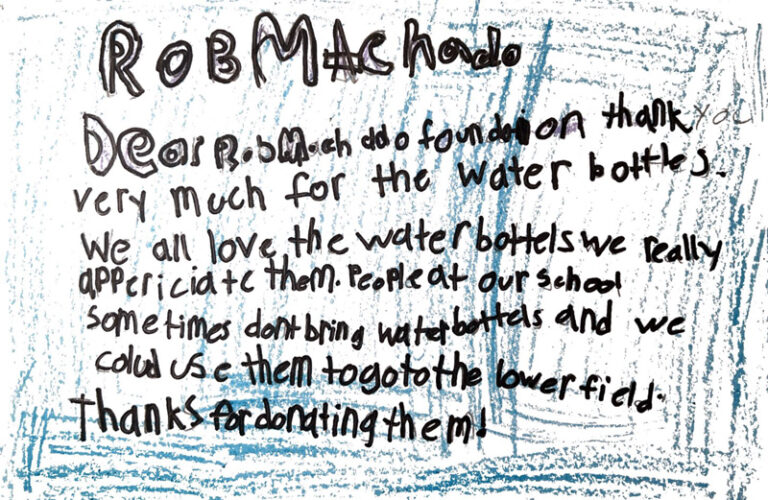 RoB MAchado
Dear Rob Mach ado foundation thank you
very much for the water bottles.
We all love the water bottels we really
appericiate them. People at our school
sometimes dont bring water bottels and we
colud use them to go to the lower field.
Thanks for donating them!